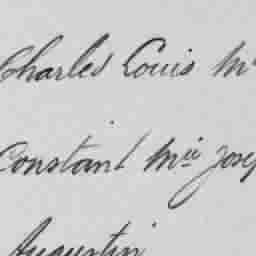 Charles Louis M
Constant Mie Jose
Augustin